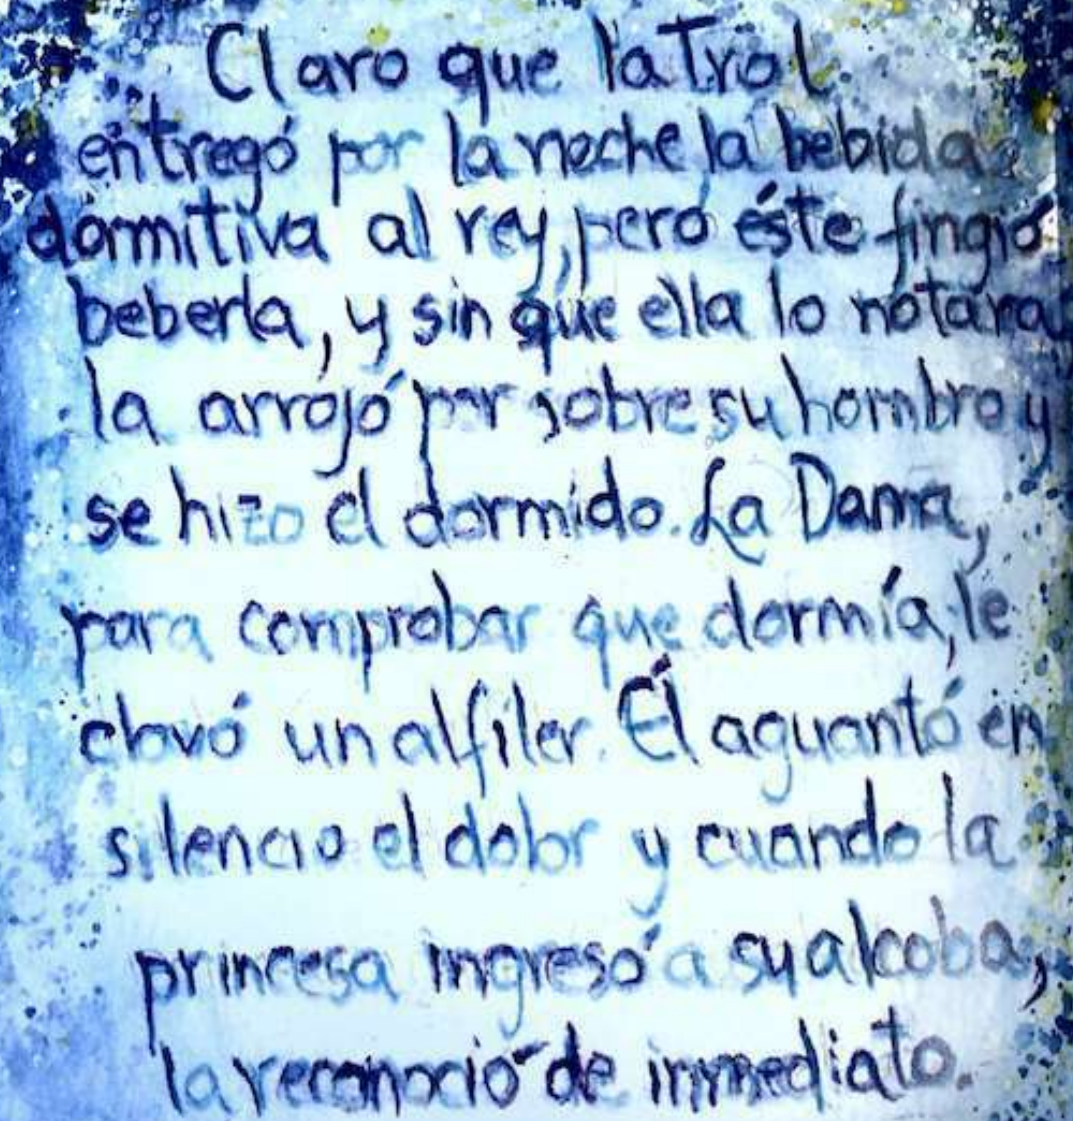 Claro que la Trol
entregó por la noche la bebida
dormitiva al rey, pero éste fingió
beberla, y sin que ella lo notara
la arrojó por sobre su hombro y
se hizo el dormido. La Dama,
para comprobar que dormía, le
clavó un alfiler. Él aguantó en
silencio el dolor y cuando la
princesa ingresó a su alcoba,
la reconoció de inmediato.